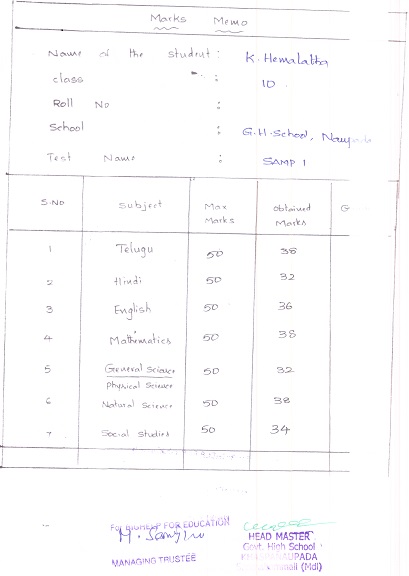 Marks Memo
Name of the student : K. Hemalatha
class : 10
Roll No :
School : G.H.School, Naupada
Test Name : SAMP 1
S.NO Subject Max Marks Obtained Marks G
1 Telugu 50 38
2 Hindi 50 32
3 English 50 36
4 Mathematics 50 38
5 General Science 50 32
Physical Science
6 Natural Science 50 38
7 Social Studies 50 34
For BIGHELP FOR EDUCATION
MANAGING TRUSTEE
HEAD MASTER
Govt. High School
NAUPADA
(Mdl)